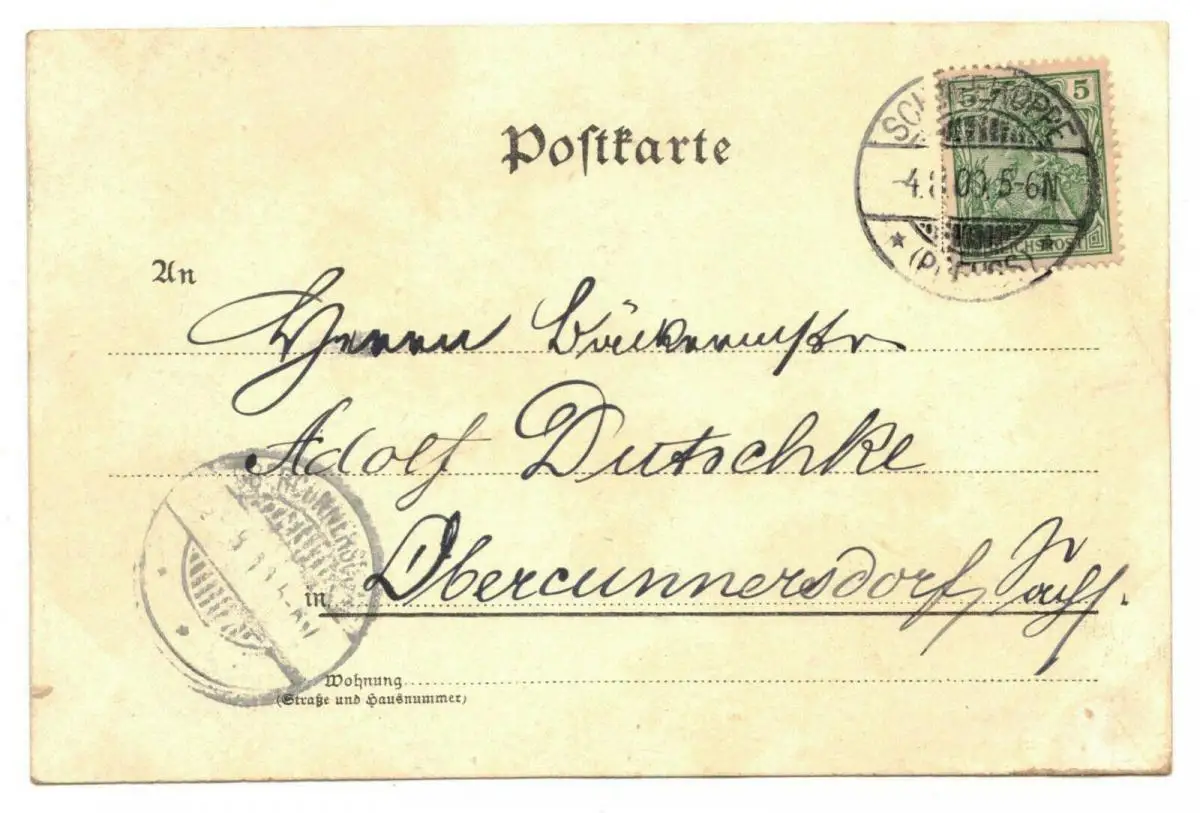 Postkarte
5 5
SCHNEEKOPPE
4.8.00. 5-6N
REICHSPOST
An
Herrn Bäckermstr
Adolf Dutschke
in Obercunnersdorf, Sachs.
Wohnung
(Straße und Hausnummer)